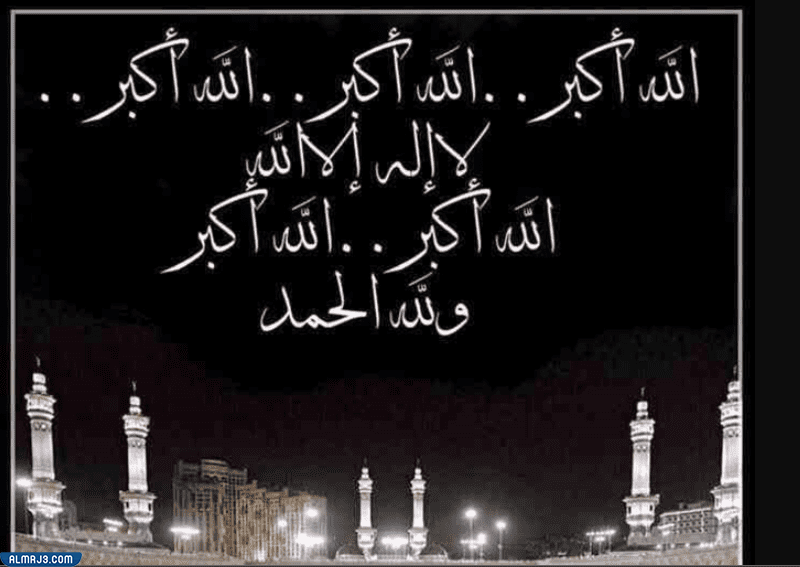 الله أكبر . . الله أكبر . . الله أكبر . .
لا إله إلا الله
الله أكبر . . الله أكبر
ولله الحمد
ALMRJ3.COM